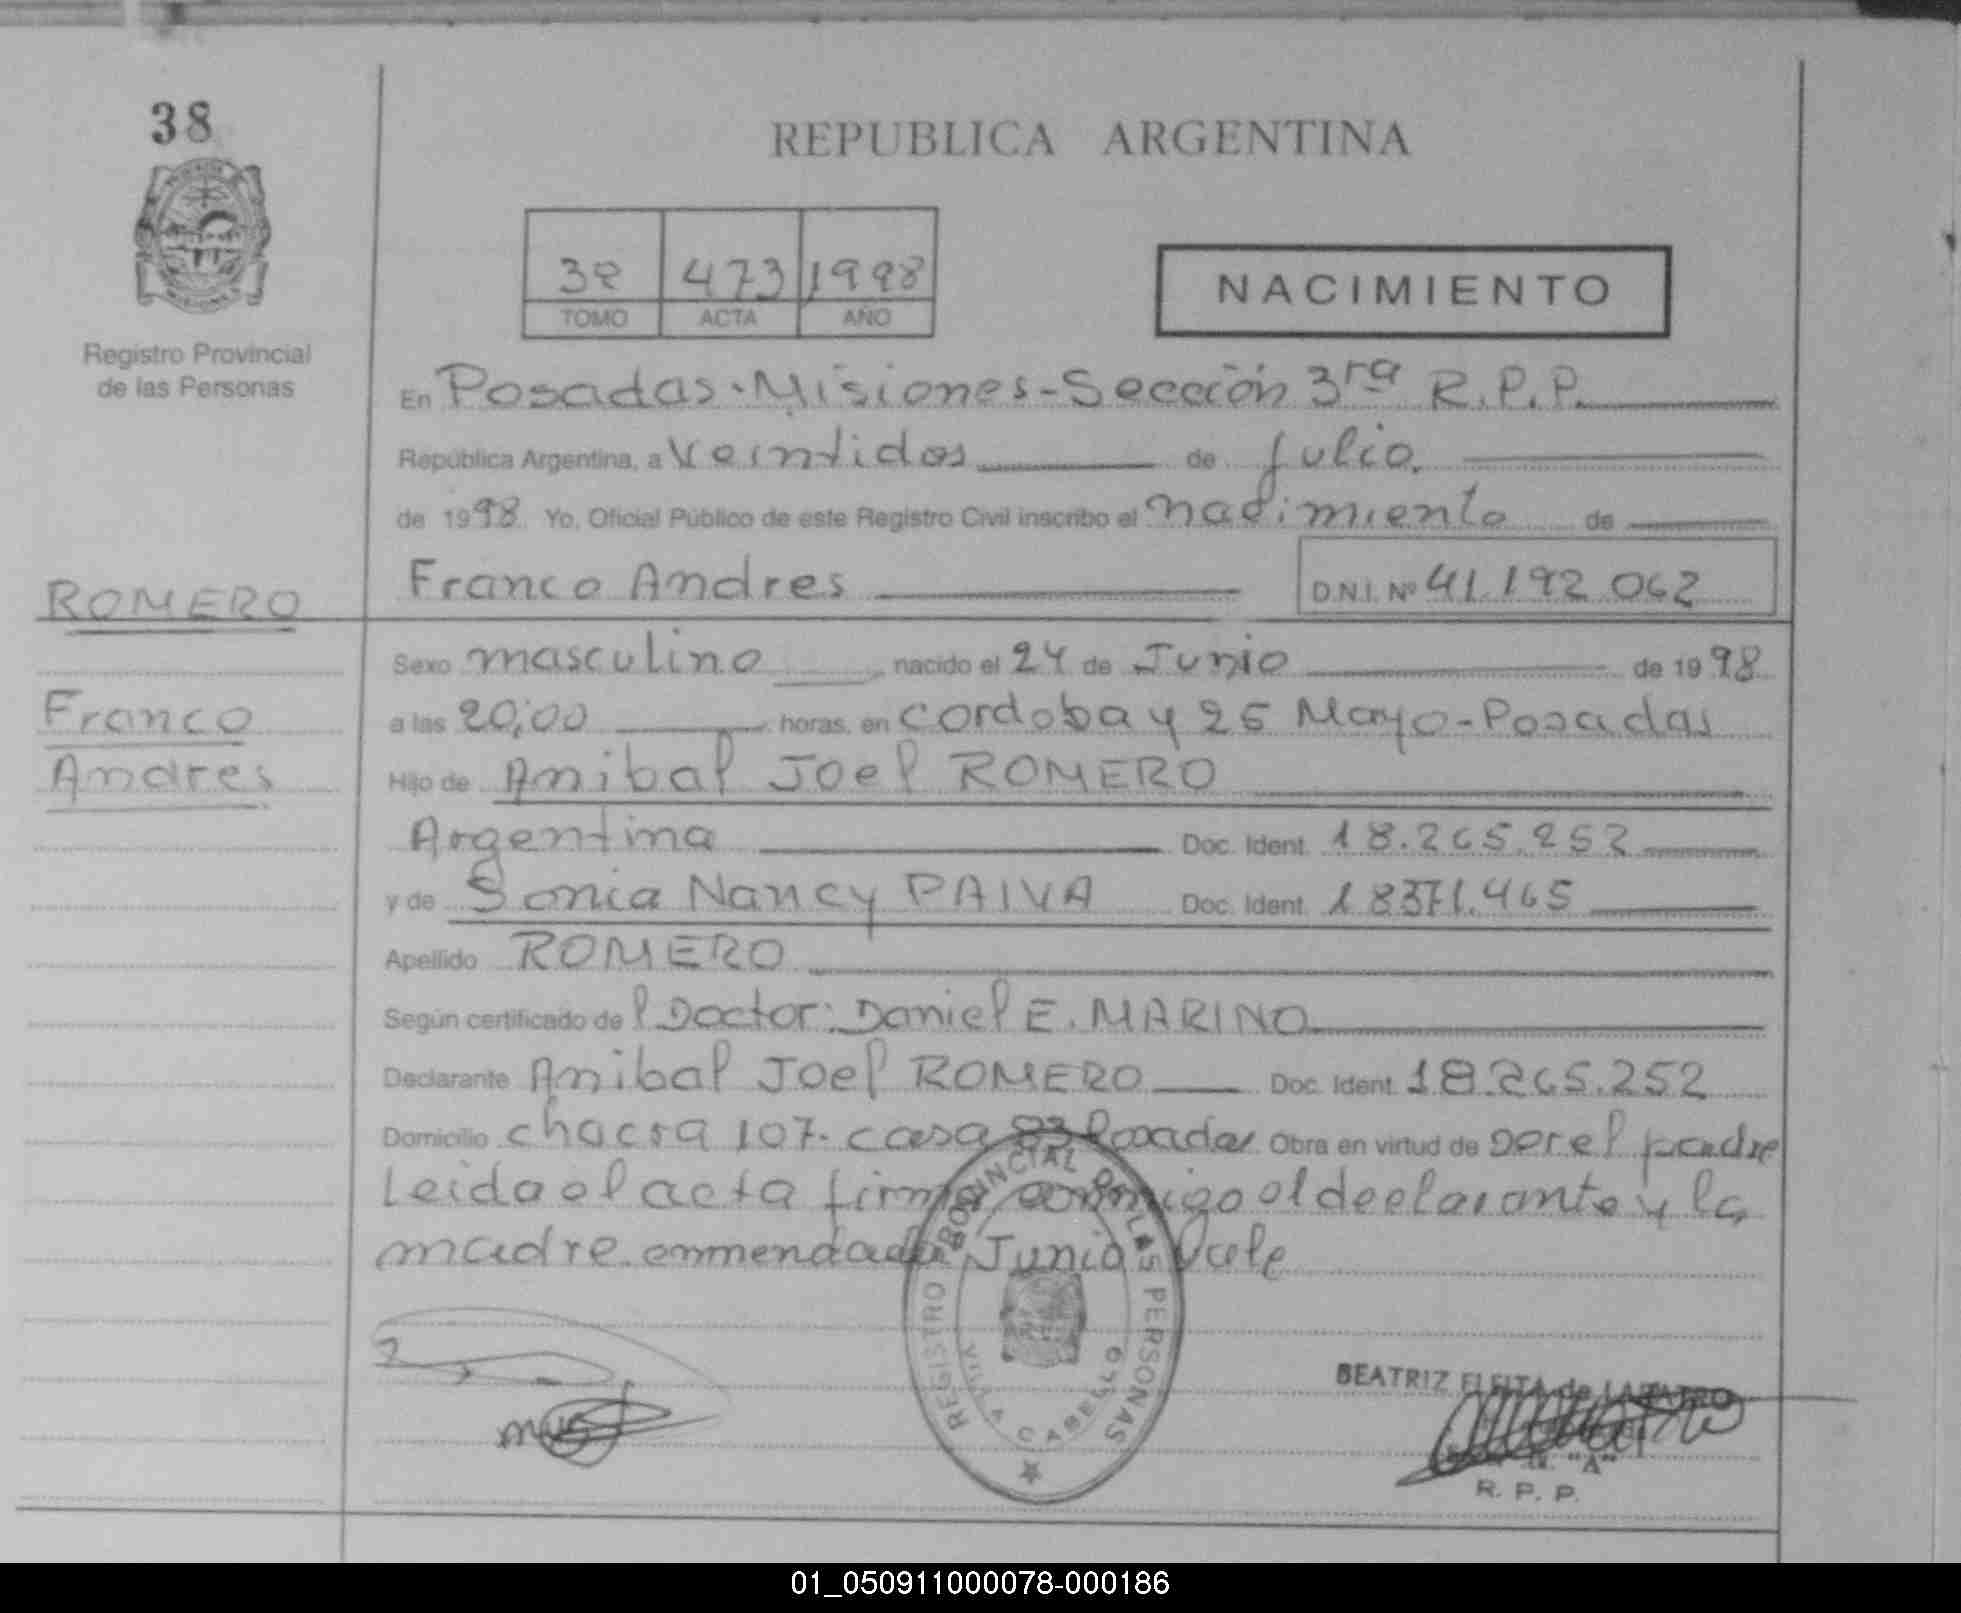 38
REPUBLICA ARGENTINA
3º 473 1998
TOMO ACTA AÑO
NACIMIENTO
Registro Provincial
de las Personas
En Posadas-Misiones-Sección 3ra R.P.P.
República Argentina, a Veintidos de Julio.
de 1998 Yo, Oficial Público de este Registro Civil inscribo el nacimiento de
ROMERO
Franco Andres D.N.I. Nº 41.192.062
Sexo masculino nacido el 24 de Junio de 1998
Franco
a las 20,00 horas, en Cordoba y 25 Mayo-Posadas
Andres
Hijo de Anibal Joel ROMERO
Argentina Doc. Ident. 18.265.252
y de Sonia Nancy PAIVA Doc. Ident. 18371.465
Apellido ROMERO
Según certificado del Doctor: Daniel E. MARINO
Declarante Anibal Joel ROMERO Doc. Ident. 18.265.252
Domicilio chacra 107. casa 83 Posadas Obra en virtud de ser el padre
Leida el acta firma conmigo el declarante y la
madre. enmendado Junio Vale
REGISTRO PROVINCIAL DE LAS PERSONAS
VILLA CABELLO
BEATRIZ FLEITA de
"A"
R. P. P.
01_050911000078-000186